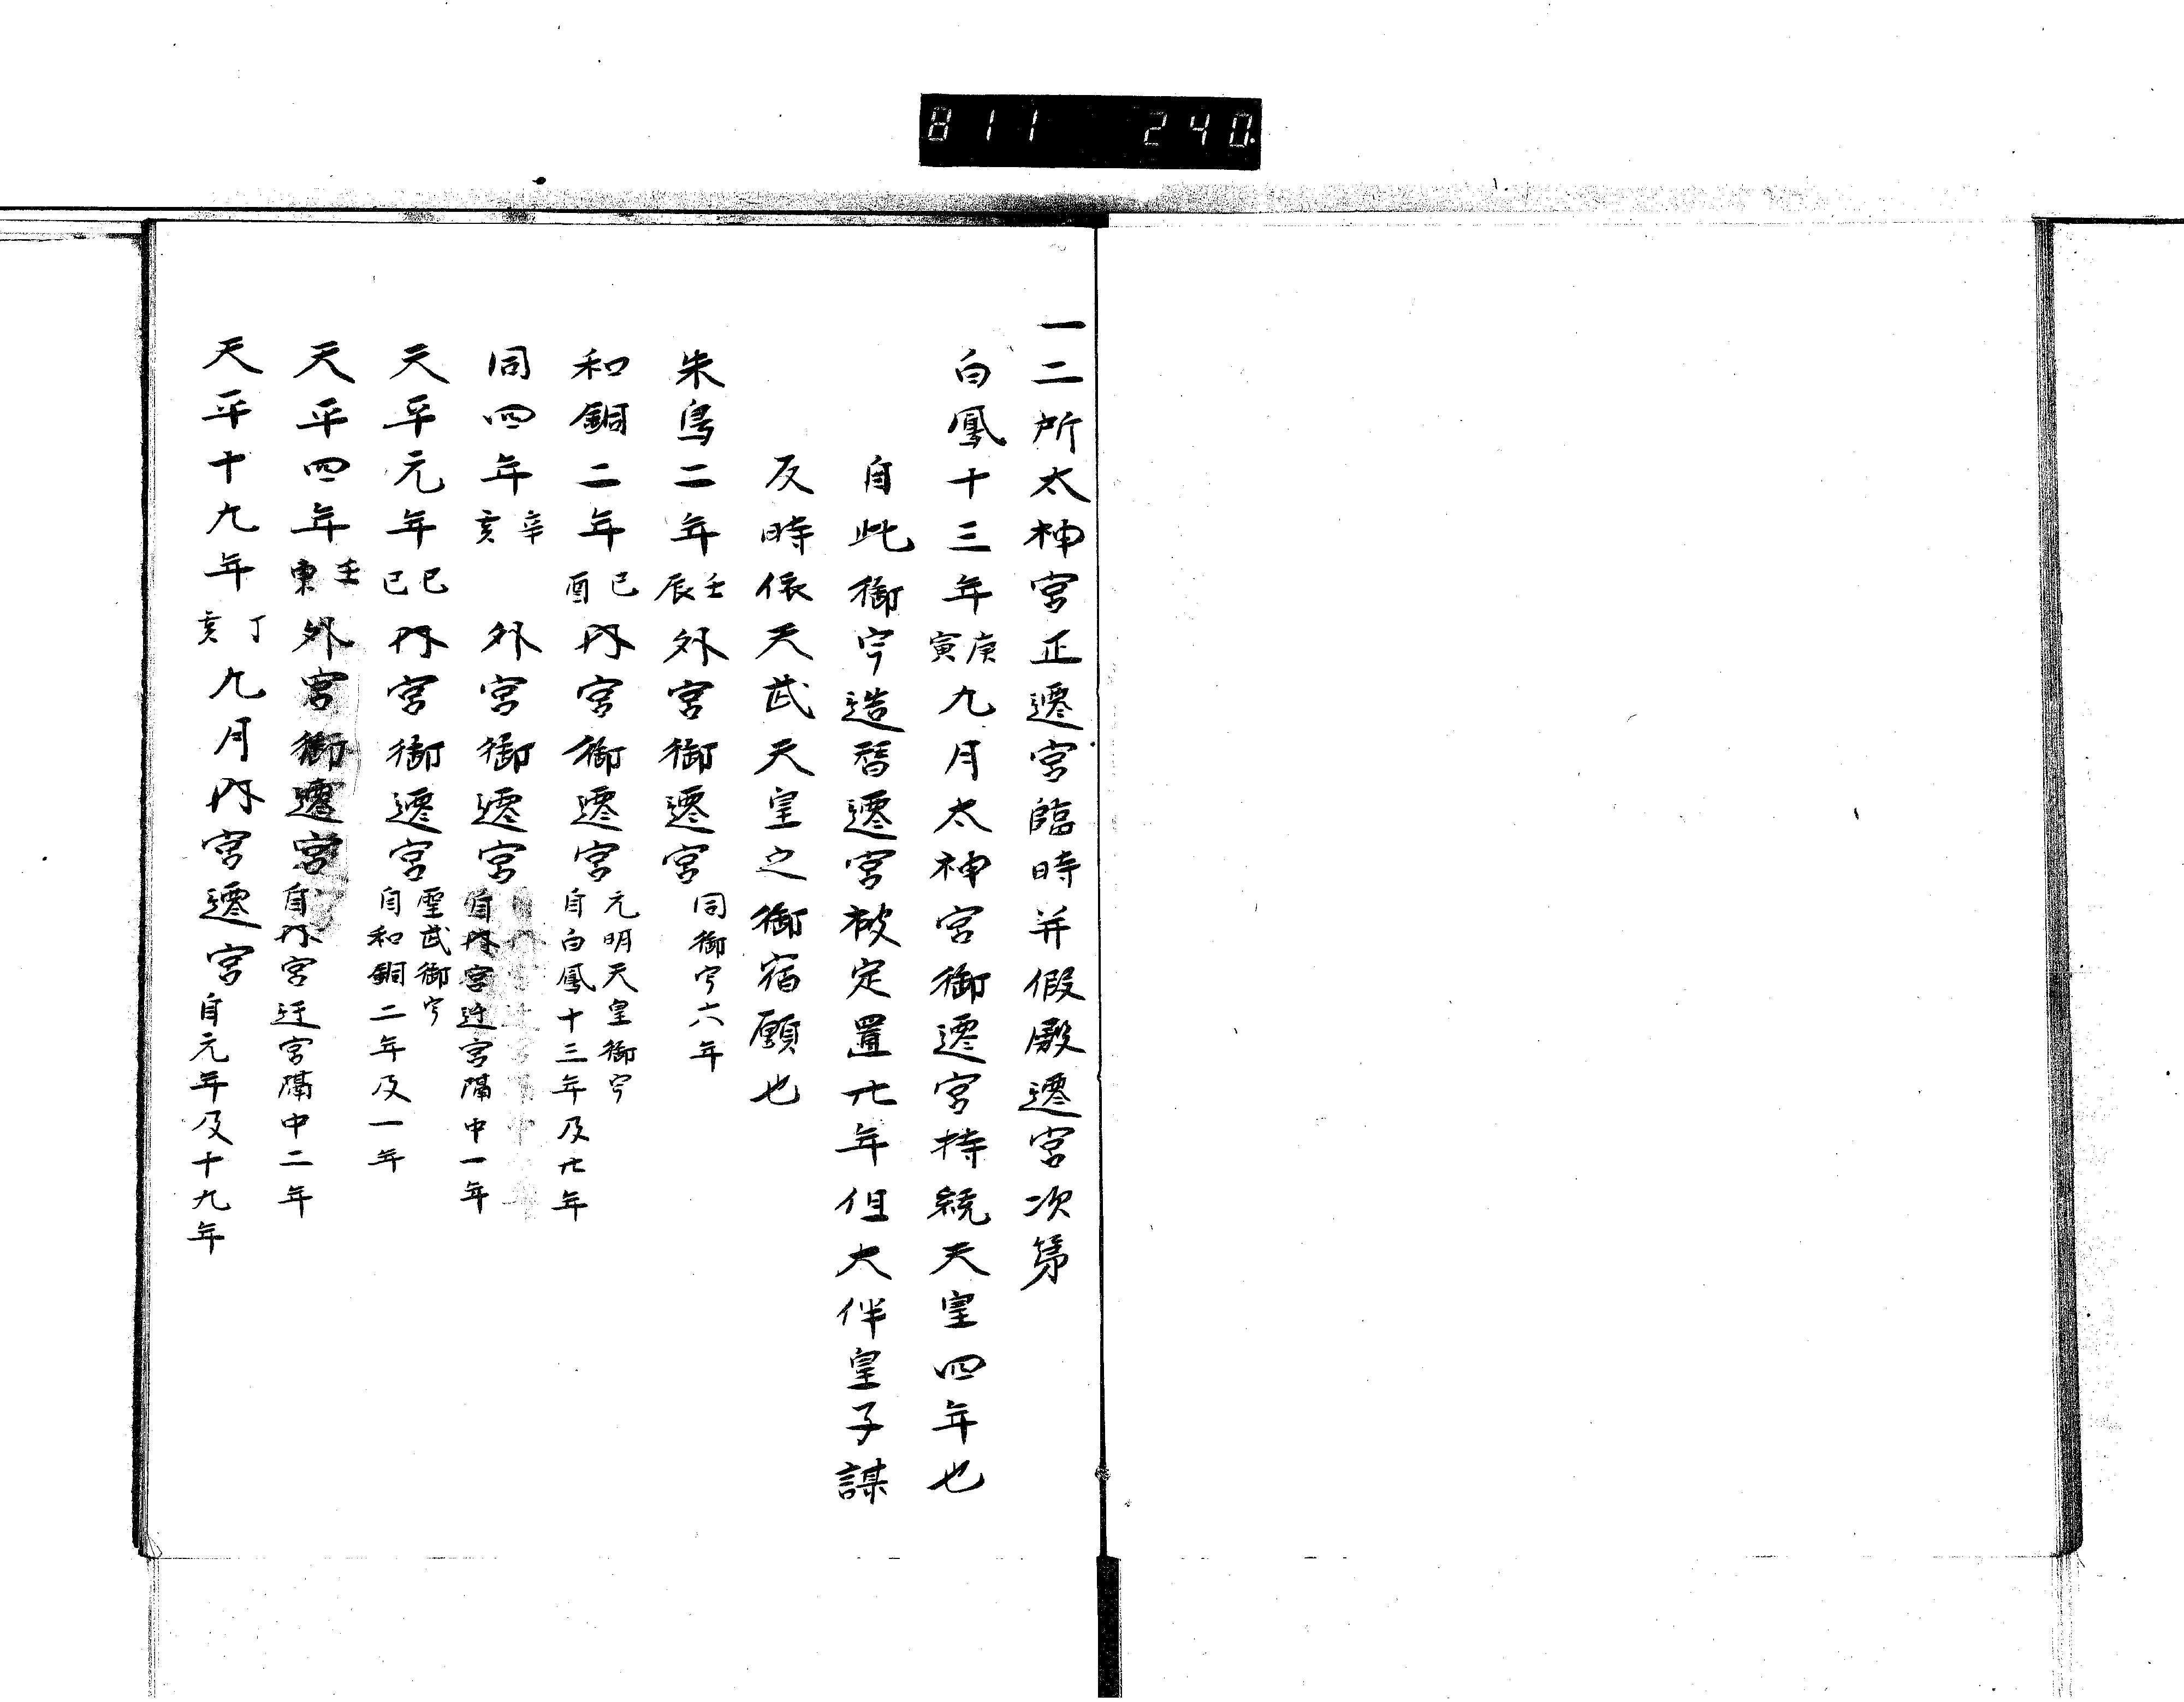 811 240
一二所太神宮正遷宮臨時并假殿遷宮次第
白鳳十三年庚寅九月太神宮御遷宮持統天皇四年也
自此御宇造替遷宮被定置廿年但大伴皇子謀
反時依天武天皇之御宿願也
朱鳥二年壬辰外宮御遷宮同御宇六年
和銅二年己酉内宮御遷宮元明天皇御宇自白鳳十三年及廿年
同四年辛亥外宮御遷宮自内宮迁宮隔中一年
天平元年己巳内宮御遷宮聖武御宇自和銅二年及一年
天平四年壬外宮御遷宮自内宮迁宮隔中二年
天平十九年丁亥九月内宮遷宮自元年及十九年